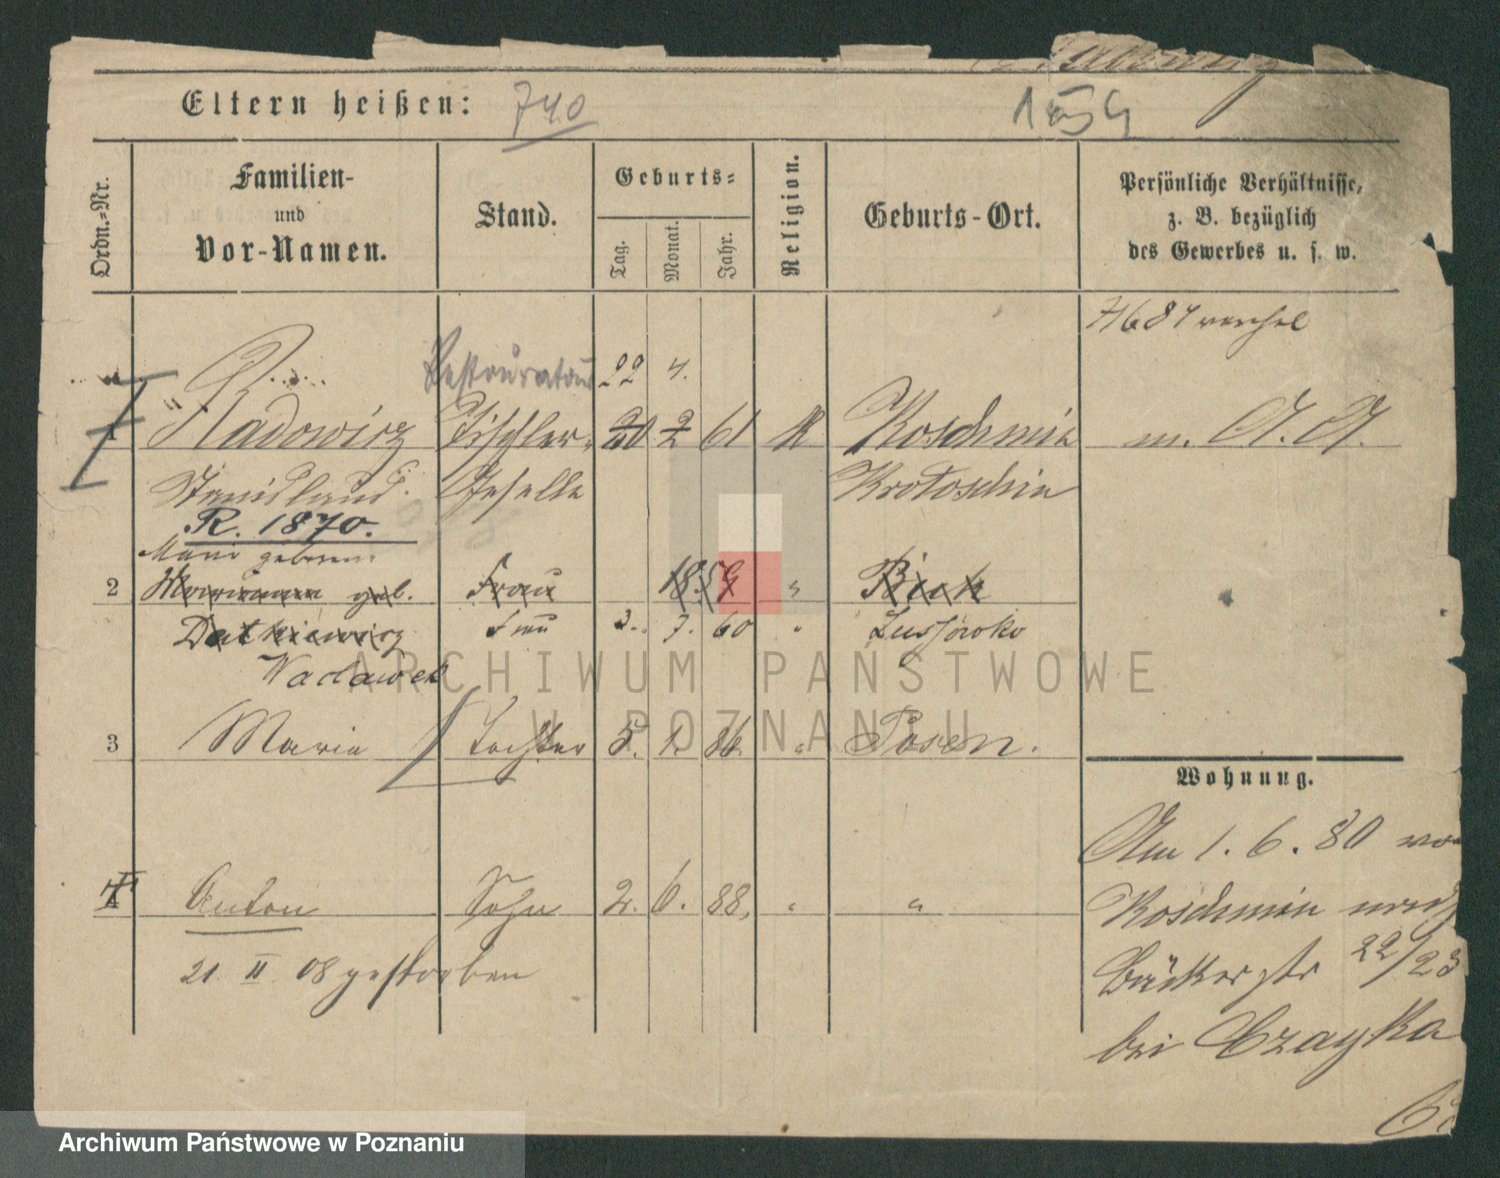 Eltern heißen: 740
Ordn.=Nr.
Familien- und Vor-Namen.
Stand.
Geburts=
Tag. Monat. Jahr.
Religion.
Geburts-Ort.
Persönliche Verhältnisse, z. B. bezüglich des Gewerbes u. s. w.
Restaurateur 22 4.
1 Radowicz Tischler- 20 2 61 K Koschmin m. A. A.
Stanislaus Geselle Krotoschin
R. 1870.
geborene
2 Marianna geb. Frau 1859 " Buk
Frau 3. 7. 60 "
Wacławek
3 Marie Tochter 5. 1. 86. " Posen.
Wohnung.
Am 1. 6. 80 vo
4 Anton Sohn 2. 6. 88. " "
Koschmin nach
21. II 08 gestorben
Bäckerstr 22/23
bei Czayka
ARCHIWUM PAŃSTWOWE
W POZNANIU
Archiwum Państwowe w Poznaniu